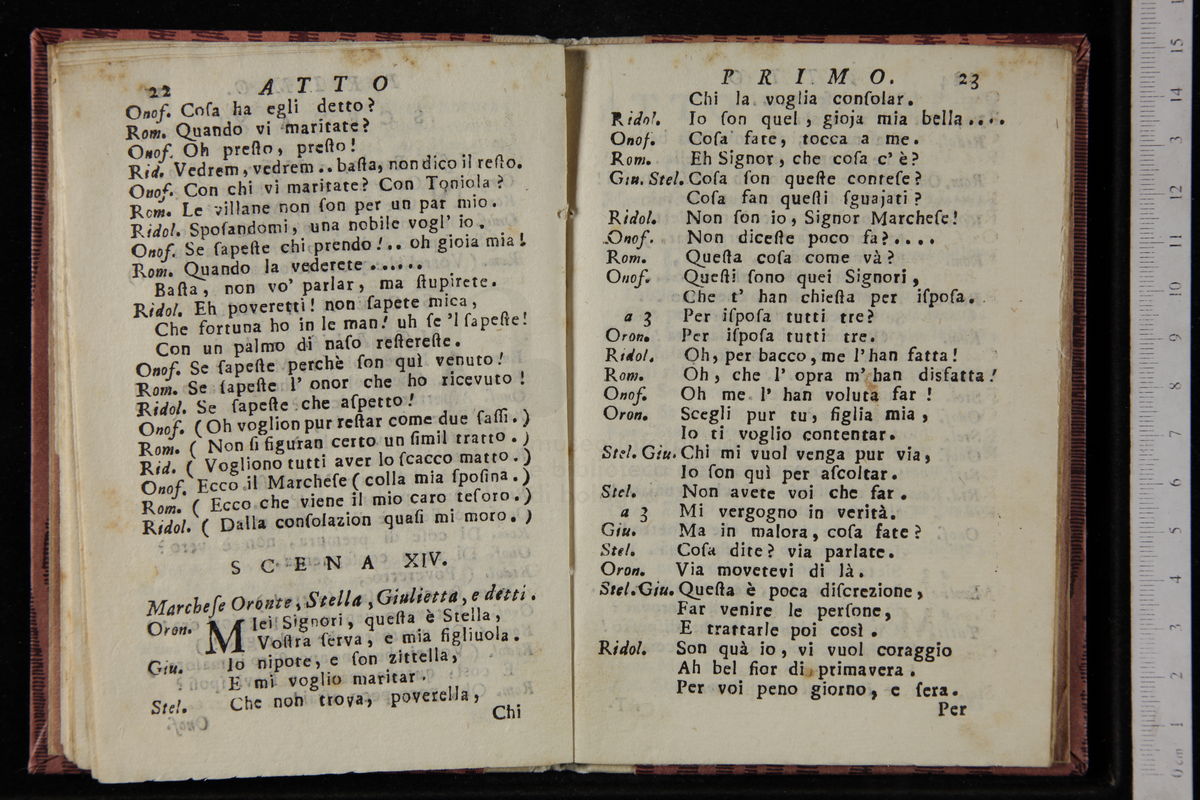 22 ATTO
Onof. Coſa ha egli detto?
Rom. Quando vi maritate?
Onof. Oh preſto, preſto!
Rid. Vedrem, vedrem .. baſta, non dico il reſto.
Onof. Con chi vi maritate? Con Toniola?
Rom. Le villane non ſon per un par mio.
Ridol. Spoſandomi, una nobile vogl' io.
Onof. Se ſapeſte chi prendo!.. oh gioia mia!
Rom. Quando la vederete......
Baſta, non vo' parlar, ma ſtupirete.
Ridol. Eh poveretti! non ſapete mica,
Che fortuna ho in le man! uh ſe 'l ſapeſte!
Con un palmo di naſo reſtereſte.
Onof. Se ſapeſte perchè ſon quì venuto!
Rom. Se ſapeſte l' onor che ho ricevuto!
Ridol. Se ſapeſte che aſpetto!
Onof. (Oh voglion pur reſtar come due ſaſſi.)
Rom. ( Non ſi figuran certo un ſimil tratto.)
Rid. ( Vogliono tutti aver lo ſcacco matto.)
Onof. Ecco il Marcheſe (colla mia ſpoſina.)
Rom. ( Ecco che viene il mio caro teſoro.)
Ridol. ( Dalla conſolazion quaſi mi moro.)
SCENA XIV.
Marcheſe Oronte, Stella, Giulietta, e detti.
Oron. MIei Signori, queſta è Stella,
Voſtra ſerva, e mia figliuola.
Giu. Io nipote, e ſon zittella,
E mi voglio maritar.
Stel. Che non trova, poverella,
Chi
PRIMO. 23
Chi la voglia conſolar.
Ridol. Io ſon quel, gioja mia bella....
Onof. Coſa fate, tocca a me.
Rom. Eh Signor, che coſa c' è?
Giu. Stel. Coſa ſon queſte conteſe?
Coſa fan queſti ſguajati?
Ridol. Non ſon io, Signor Marcheſe!
Onof. Non diceſte poco fa?....
Rom. Queſta coſa come và?
Onof. Queſti ſono quei Signori,
Che t' han chieſta per iſpoſa.
a 3 Per iſpoſa tutti tre?
Oron. Per iſpoſa tutti tre.
Ridol. Oh, per bacco, me l' han fatta!
Rom. Oh, che l' opra m' han disfatta!
Onof. Oh me l' han voluta far!
Oron. Scegli pur tu, figlia mia,
Io ti voglio contentar.
Stel. Giu. Chi mi vuol venga pur via,
Io ſon quì per aſcoltar.
Stel. Non avete voi che far.
a 3 Mi vergogno in verità.
Giu. Ma in malora, coſa fate?
Stel. Coſa dite? via parlate.
Oron. Via movetevi di là.
Stel. Giu. Queſta è poca diſcrezione,
Far venire le perſone,
E trattarle poi così.
Ridol. Son quà io, vi vuol coraggio
Ah bel fior di primavera.
Per voi peno giorno, e ſera.
Per